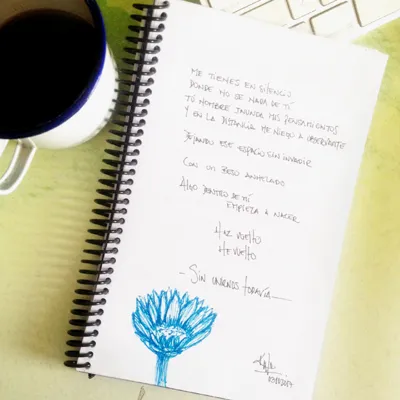 ME TIENES EN SILENCIO
DONDE NO SÉ NADA DE TI
TÚ NOMBRE INUNDA MIS PENSAMIENTOS
Y EN LA DISTANCIA ME NIEGO A OBSERVARTE
DEJANDO ESE ESPACIO SIN INVADIR
CON UN BESO ANHELADO
ALGO DENTRO DE MÍ
EMPIEZA A NACER
HAZ VUELTO
HE VUELTO
- SIN UNIRNOS TODAVÍA -